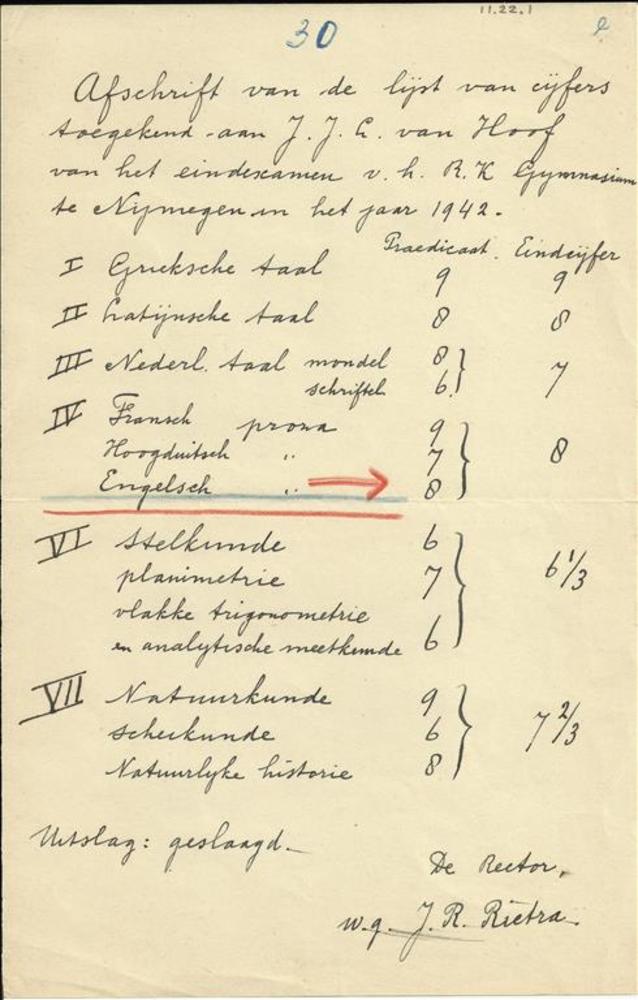 11.22.1
30
Afschrift van de lijst van cijfers
toegekend aan J. J. G. van Hoof
van het eindexamen v. h. R.K Gymnasium
te Nijmegen in het jaar 1942.
Praedicaat. Eindcijfer
I Grieksche taal 9 9
II Latijnsche taal 8 8
III Nederl. taal mondel 8 } 7
schriftel. 6
IV Fransch proza 9 } 8
Hoogduitsch " 7
Engelsch " → 8
VI Stelkunde 6 } 6 1/3
planimetrie 7
vlakke trigonometrie
en analytische meetkunde 6
VII Natuurkunde 9 } 7 2/3
scheikunde 6
Natuurlyke historie 8
Uitslag: geslaagd.
De Rector,
w.g. J. R. Rietra.